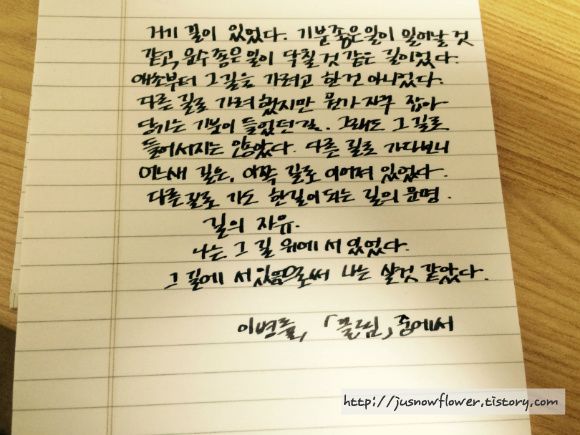 거기 길이 있었다. 기분좋은일이 일어날 것
같고, 운수 좋은 일이 닥칠 것 같은 길이었다.
애초부터 그 길을 가려고 한건 아니었다.
다른 길로 가려 했지만 뭔가 자꾸 잡아
당기는 기분이 들었던 길. 그래도 그 길로
들어서지는 않았다. 다른 길로 가다보니
어느새 길은, 이쪽 길로 이어져 있었다.
다른 길로 가도 한길이 되는 길의 문명.
길의 자유.
나는 그 길 위에 서 있었다.
그 길에 서 있음으로써 나는 살것 같았다.
이병률, 「끌림」 중에서
http://jusnowflower.tistory.com